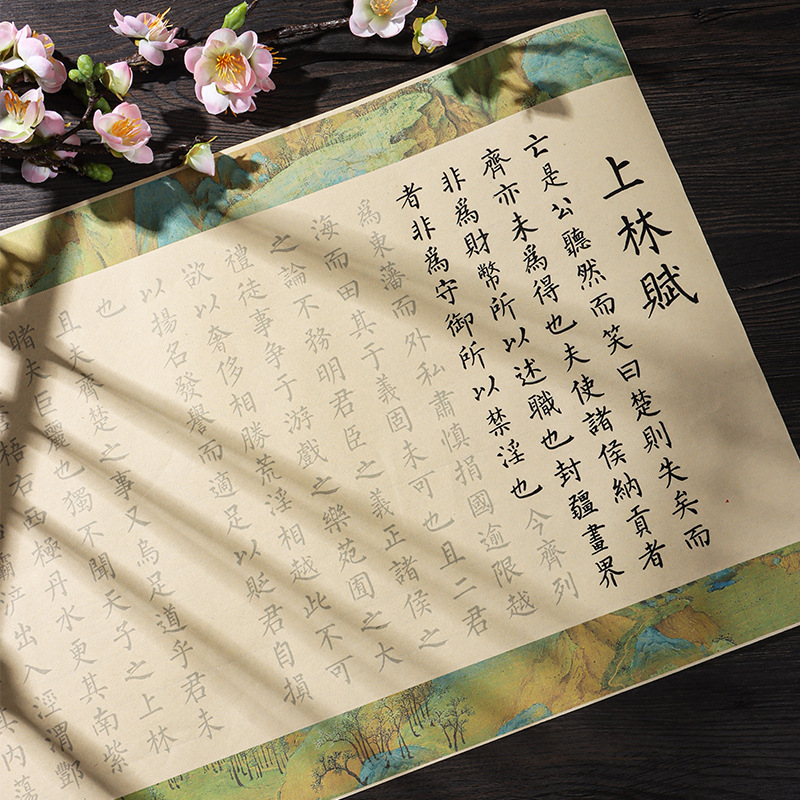 上林賦
亡是公聽然而笑曰楚則失矣而
齊亦未爲得也夫使諸侯納貢者
非爲財幣所以述職也封疆畫界
者非爲守御所以禁淫也今齊列
爲東藩而外私肅慎捐國逾限越
海而田其于義固未可也且二君
之論不務明君臣之義正諸侯之
禮徒事争于游戲之樂苑囿之大
欲以奢侈相勝荒淫相越此不可
以揚名發譽而適足以貶君自損
也
且夫齊楚之事又烏足道乎君未
睹夫巨麗也獨不聞天子之上林
梧右西極丹水更其南紫
出入涇渭酆
其内蕩